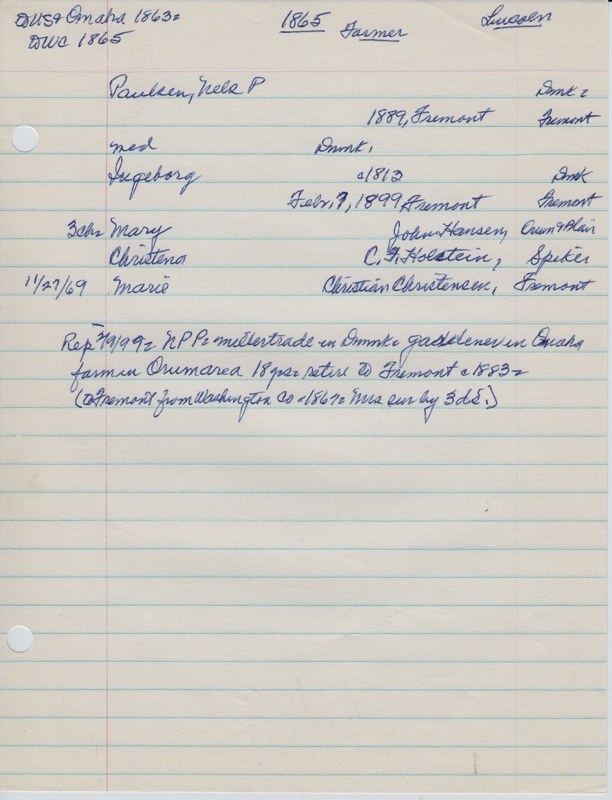 DUSA Omaha 1863= 1865 Farmer Lincoln
DWC 1865
Paulsen, Nels P Dmk=
1889, Fremont Fremont
med Dnmk,
Ingeborg c1813 Dmk
Febr. 7, 1899 Fremont Fremont
3ch= Mary John Hansen, Orum & Blair
Christena C. F. Holstein, Spiker
11/27/69 Marie Christian Christensen, Fremont
Rep 3/9/99= N P P= millertrade in Dnmk= gardener in Omaha
farm in Orum area 18 yrs= retire to Fremont c1883=
(to Fremont from Washington Co c1867= Mrs sur by 3 ds.)